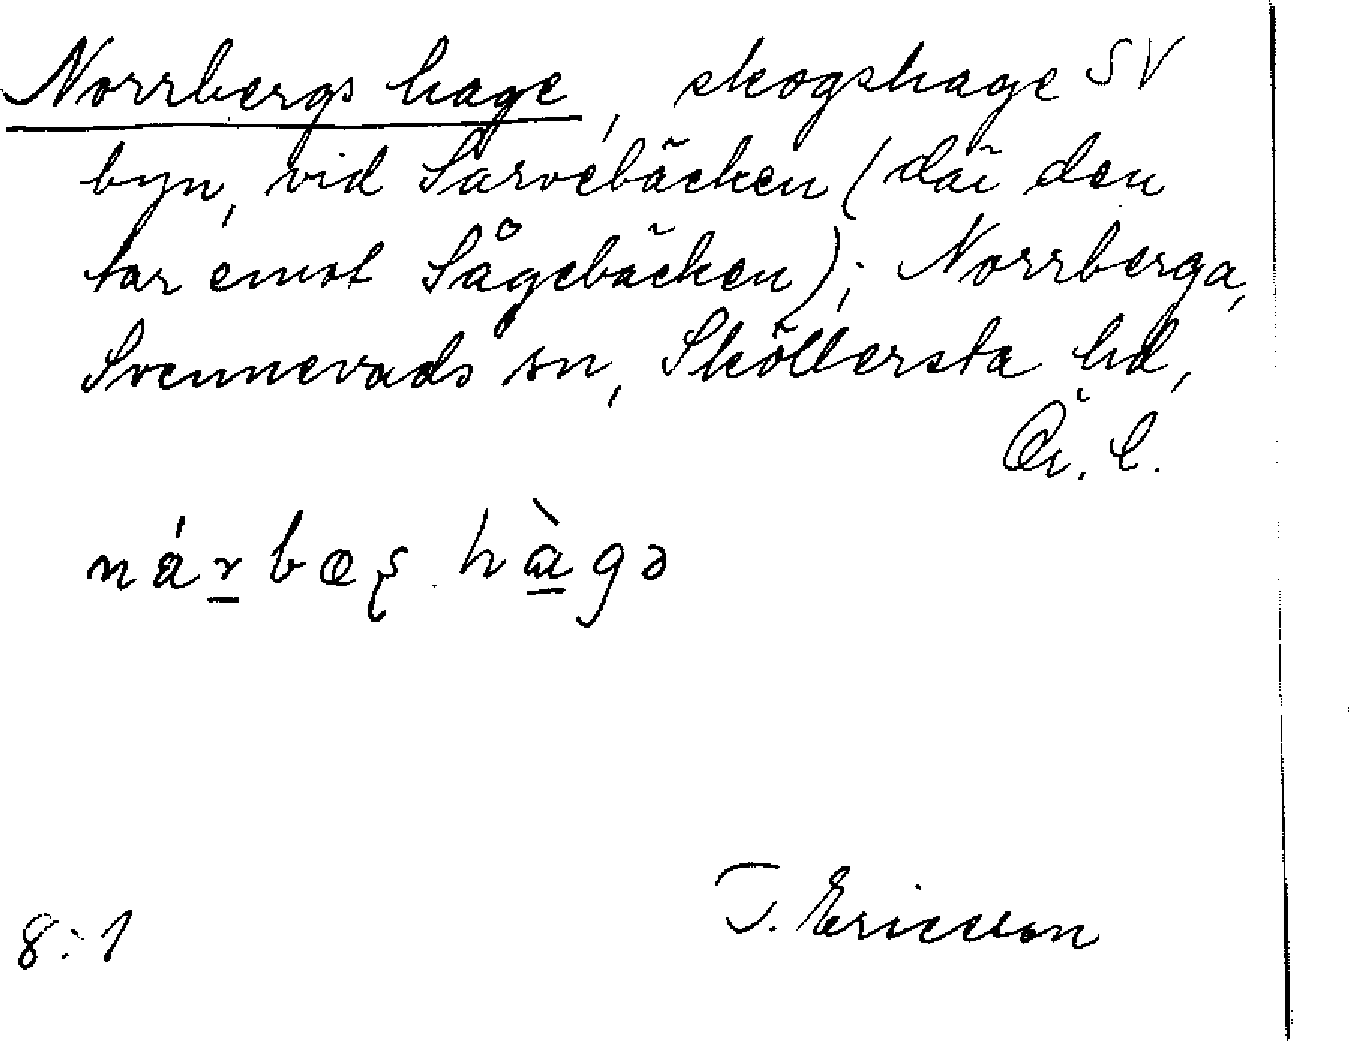 Norrbergs hage, skogshage SV
byn, vid Sarvebäcken (där den
tar emot Sågebäcken); Norrberga,
Svennevads sn, Sköllersta hd,
Ör. l.
nárbæş hàgə
T. Ericsson
8:1